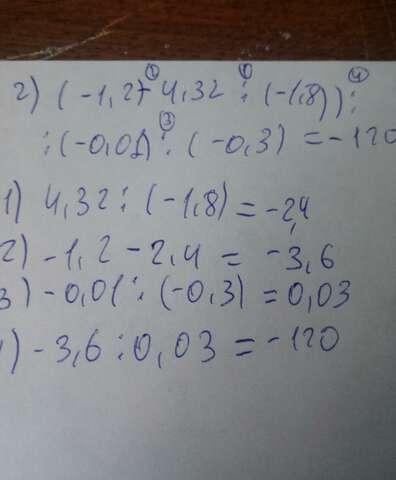 2) (-1,2+4,32 : (-1,8)) :
: (-0,01) : (-0,3) = -120
1) 4,32 : (-1,8) = -2,4
2) -1,2 - 2,4 = -3,6
3) -0,01 : (-0,3) = 0,03
4) -3,6 : 0,03 = -120